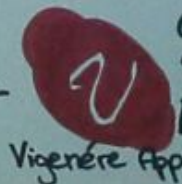 V
Vigenére App